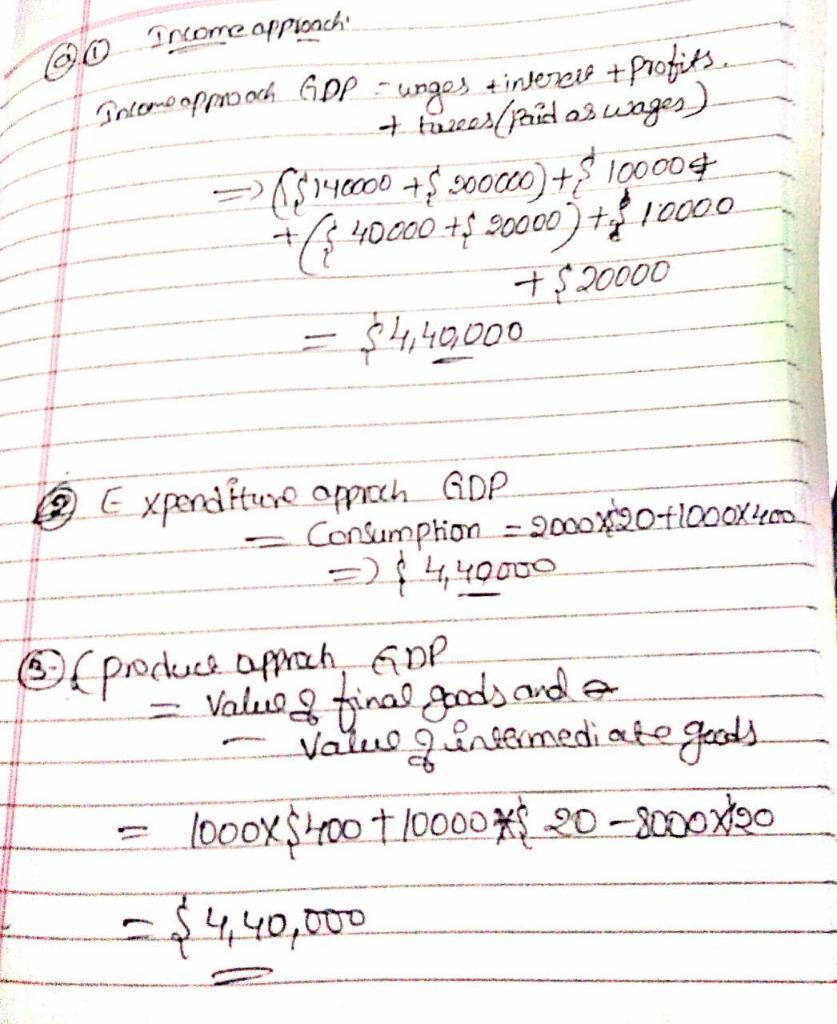 a ① Income approach
Income approach GDP = wages + interest + profits.
+ taxes (paid as wages)
=> ($140000 + $200000) + $10000
+ ($40000 + $20000) + $10000
+ $20000
= $4,40,000
② Expenditure approch GDP
= Consumption = 2000x$20+1000x400
=> $4,40000
③ ( produce apprach GDP
= Value of final goods and
- Value of intermediate goods
= 1000x$400 + 10000x$20 - 8000x$20
= $4,40,000